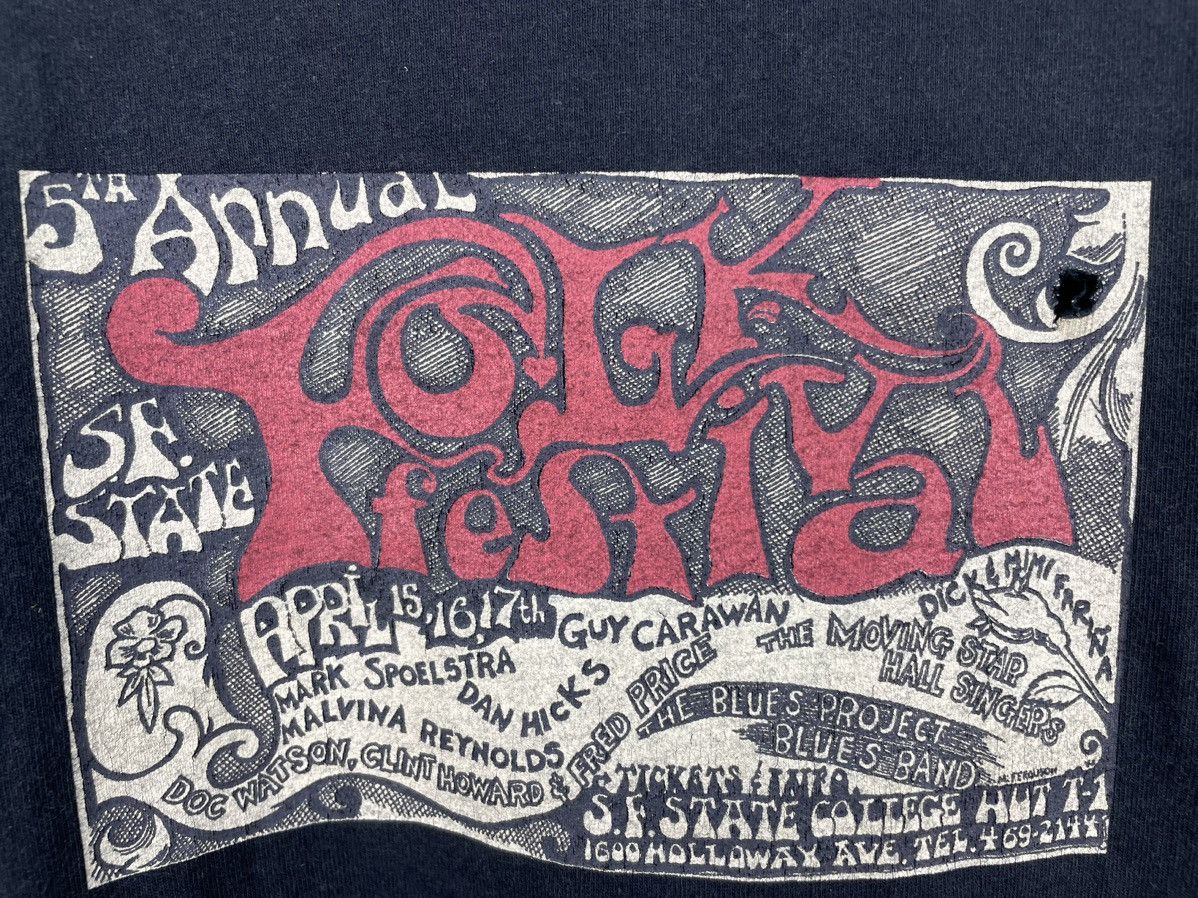 5TH Annual
FOLK
festival
S.F.
STATE
APRIL 15, 16, 17th
GUY CARAWAN
DICK & MIMI FARIÑA
MARK SPOELSTRA
DAN HICKS
THE MOVING STAR
HALL SINGERS
MALVINA REYNOLDS
DOC WATSON, CLINT HOWARD & FRED PRICE
THE BLUES PROJECT
BLUES BAND
M. FERGUSON
TICKETS & INFO.
S.F. STATE COLLEGE HUT T-1
1600 HOLLOWAY AVE. TEL. 469-2144